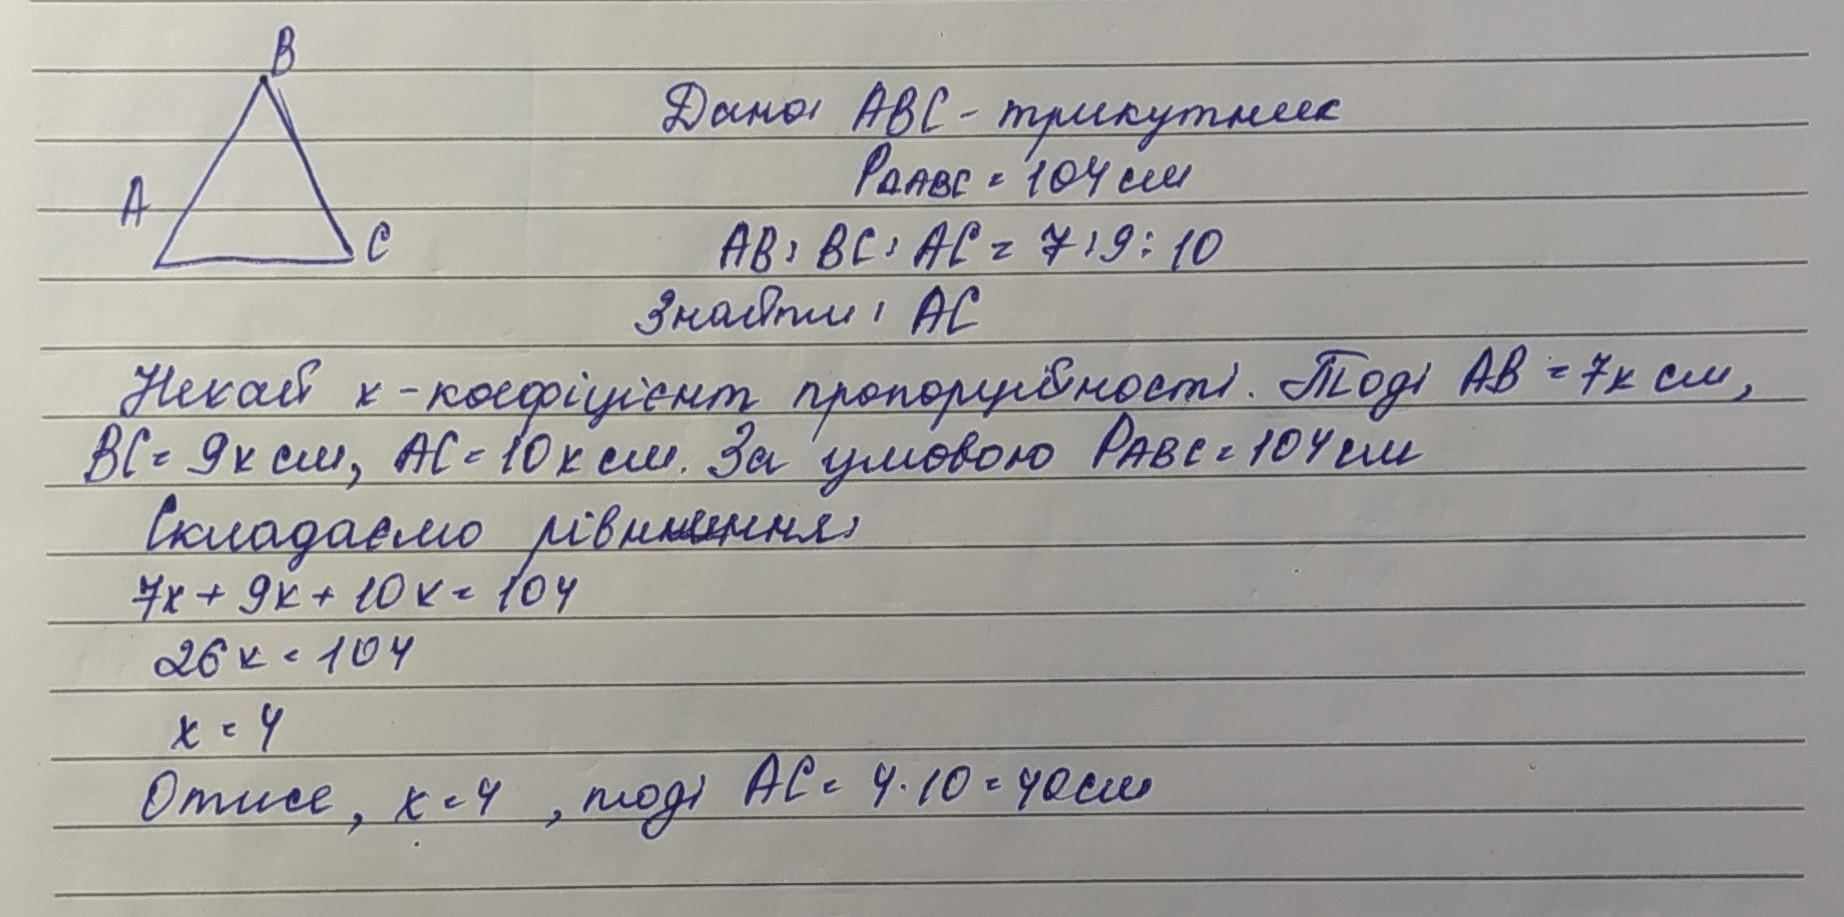 B
A
C
Дано: ABC - трикутник
P∆ABC = 104 см
AB : BC : AC = 7 : 9 : 10
Знайти : AC
Нехай x - коефіцієнт пропорційності. Тоді AB = 7x см,
BC = 9x см, AC = 10x см. За умовою PABC = 104 см
Складаємо рівняння:
7x + 9x + 10x = 104
26x = 104
x = 4
Отже, x = 4 , тоді AC = 4 · 10 = 40 см